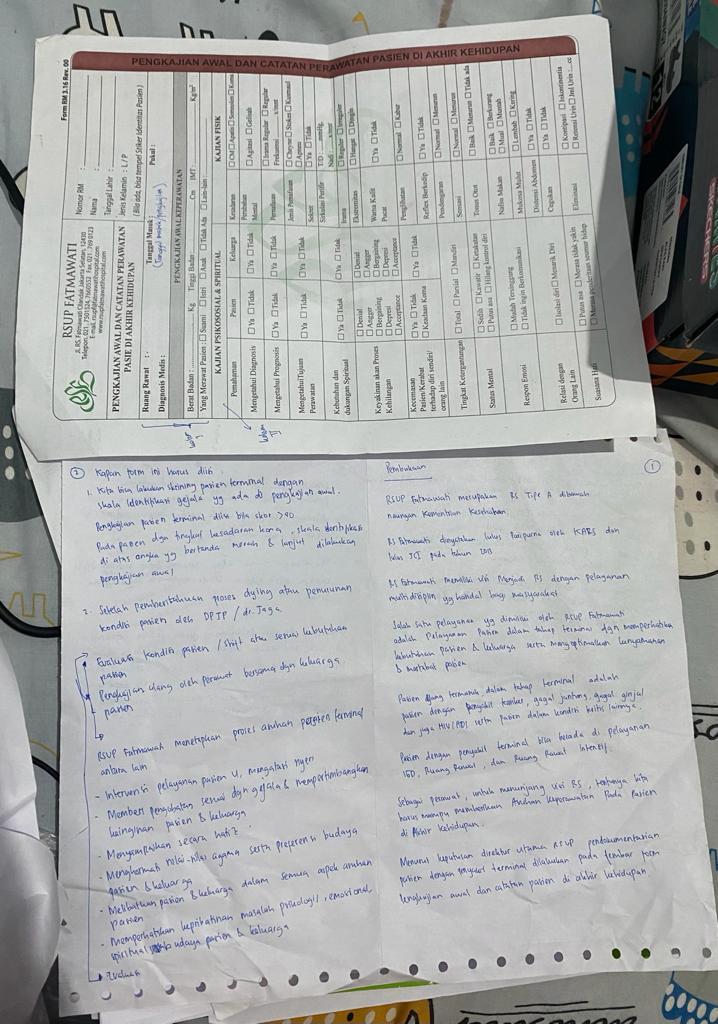 Form RM 3.16 Rev. 00
RSUP FATMAWATI
Jl. RS. Fatmawati Cilandak Jakarta Selatan 12430
Telepon. 021 - 7501524, 7660552 Fax. 021 - 769 0123
www.rsupfatmawatihospital.com
PENGKAJIAN AWAL DAN CATATAN PERAWATAN
PASIE DI AKHIR KEHIDUPAN
Nomor RM :
Nama :
Tanggal Lahir :
Jenis Kelamin : L / P
( Bila ada, bisa tempel Stiker Identitas Pasien )
PENGKAJIAN AWAL DAN CATATAN PERAWATAN PASIEN DI AKHIR KEHIDUPAN
Ruang Rawat : -
Tanggal Masuk :
Pukul :
Diagnosis Medis :
PENGKAJIAN AWAL KEPERAWATAN
Berat Badan : Kg Tinggi Badan Cm IMT: Kg/m²
Yang Merawat Pasien : ☐ Suami ☐ Istri ☐ Anak ☐ Tidak Ada ☐ Lain-lain :
KAJIAN PSIKOSOSIAL & SPIRITUAL
KAJIAN FISIK
Pemahaman Pasien Keluarga
Kesadaran ☐ CM ☐ Apatis ☐ Somnolen ☐ Koma
Mengetahui Diagnosis ☐ Ya ☐ Tidak ☐ Ya ☐ Tidak
Perubahan Mental ☐ Agitasi ☐ Gelisah
Mengetahui Prognosis ☐ Ya ☐ Tidak ☐ Ya ☐ Tidak
Pernafasan ☐ Irama Reguler ☐ Reguler
Frekuensi x/mnt
Mengetahui Tujuan Perawatan ☐ Ya ☐ Tidak ☐ Ya ☐ Tidak
Jenis Pernafasan ☐ Cheyne ☐ Stokes ☐ Kusmaul
☐ Apneu
Sekresi ☐ Ya ☐ Tidak
Kebutuhan dan dukungan Spiritual ☐ Ya ☐ Tidak ☐ Ya ☐ Tidak
Sirkulasi Perifer TD : mmHg,
Nadi x/mnt
Irama ☐ Reguler ☐ Irreguler
Ekstremitas ☐ Hangat ☐ Dingin
Keyakinan akan Proses Kehilangan
☐ Denial ☐ Denial
☐ Anger ☐ Anger
☐ Bergaining ☐ Bergaining
☐ Depresi ☐ Depresi
☐ Acceptance ☐ Acceptance
Warna Kulit Pucat ☐ Ya ☐ Tidak
Kecemasan Pasien/Kerabat terhadap diri sendiri/ orang lain
☐ Ya ☐ Tidak ☐ Ya ☐ Tidak
☐ Keadaan Koma
Penglihatan ☐ Normal ☐ Kabur
Reflex Berkedip ☐ Ya ☐ Tidak
Pendengaran ☐ Normal ☐ Menurun
Tingkat Ketergantungan ☐ Total ☐ Parsial ☐ Mandiri
Sensasi ☐ Normal ☐ Menurun
Status Mental ☐ Sedih ☐ Kuwatir ☐ Ketakutan
☐ Putus asa ☐ Hilang kontrol diri
Tonus Otot ☐ Baik ☐ Menurun ☐ Tidak ada
Nafsu Makan ☐ Baik ☐ Berkurang
☐ Mual ☐ Muntah
Respon Emosi ☐ Mudah Tersinggung
☐ Tidak ingin Berkomunikasi
Mukosa Mulut ☐ Lembab ☐ Kering
Distensi Abdomen ☐ Ya ☐ Tidak
Relasi dengan Orang Lain ☐ Isolasi diri ☐ Menarik Diri
Cegukan ☐ Ya ☐ Tidak
Suasana Hati ☐ Putus asa ☐ Merasa tidak yakin
☐ Merasa penderitaan seumur hidup
Eliminasi ☐ Konstipasi ☐ Inkontinensia
☐ Retensi Urin ☐ Jml Urin :....cc
1
Pembukaan
RSUP Fatmawati merupakan RS Tipe A dibawah
naungan Kementrian Kesehatan.
RS Fatmawati dinyatakan lulus Paripurna oleh KARS dan
lulus JCI pada tahun 2013
RS Fatmawati memiliki visi Menjadi RS dengan pelayanan
multi disiplin yg handal bagi masyarakat
Salah satu pelayanan yg dimiliki oleh RSUP Fatmawati
adalah Pelayanan Pasien dalam tahap terminal dgn memperhatikan
kebutuhan pasien & keluarga serta mengoptimalkan kenyamanan
& martabat pasien
Pasien yang termasuk dalam tahap terminal adalah
pasien dengan penyakit kanker, gagal jantung, gagal ginjal
dan juga HIV/AIDS serta pasien dalam kondisi kritis lainnya.
Pasien dengan penyakit terminal bisa berada di pelayanan
IGD, Ruang Rawat, dan Ruang Rawat Intensif.
Sebagai perawat, untuk menunjang visi RS, tentunya kita
harus mampu memberikan Asuhan Keperawatan Pada Pasien
di Akhir Kehidupan.
Menurut keputusan direktur utama RSUP pendokumentasian
pasien dengan terminal dilakukan pada lembar form
pengkajian awal dan catatan pasien di akhir kehidupan.
2 Kapan form ini harus diisi
1. Kita bisa lakukan skrining pasien terminal dengan
skala identifikasi gejala yg ada di pengkajian awal.
Pengkajian pasien terminal diisi bila skor >90
Pada pasien dgn tingkat kesadaran koma, skala identifikasi
di atas angka yg bertanda merah & lanjut dilakukan
pengkajian awal
2. Setelah pemberitahuan proses dying atau penurunan
kondisi pasien oleh DPJP / dr. Jaga
Evaluasi kondisi pasien / shift atau sesuai kebutuhan
pasien
Pengkajian ulang oleh perawat bersama dgn keluarga
pasien
RSUP Fatmawati menetapkan proses asuhan pasien terminal
antara lain
- Intervensi pelayanan pasien u/ mengatasi nyeri
- Memberi pengobatan sesuai dgn gejala & mempertimbangkan
keinginan pasien & keluarga
- Menyampaikan secara hati2
- Menghormati nilai-nilai agama serta preferensi budaya
pasien & keluarga
- Melibatkan pasien & keluarga dalam semua aspek asuhan
pasien
- Memperhatikan keprihatinan masalah psikologi, emosional,
spiritual budaya pasien & keluarga
Evaluasi